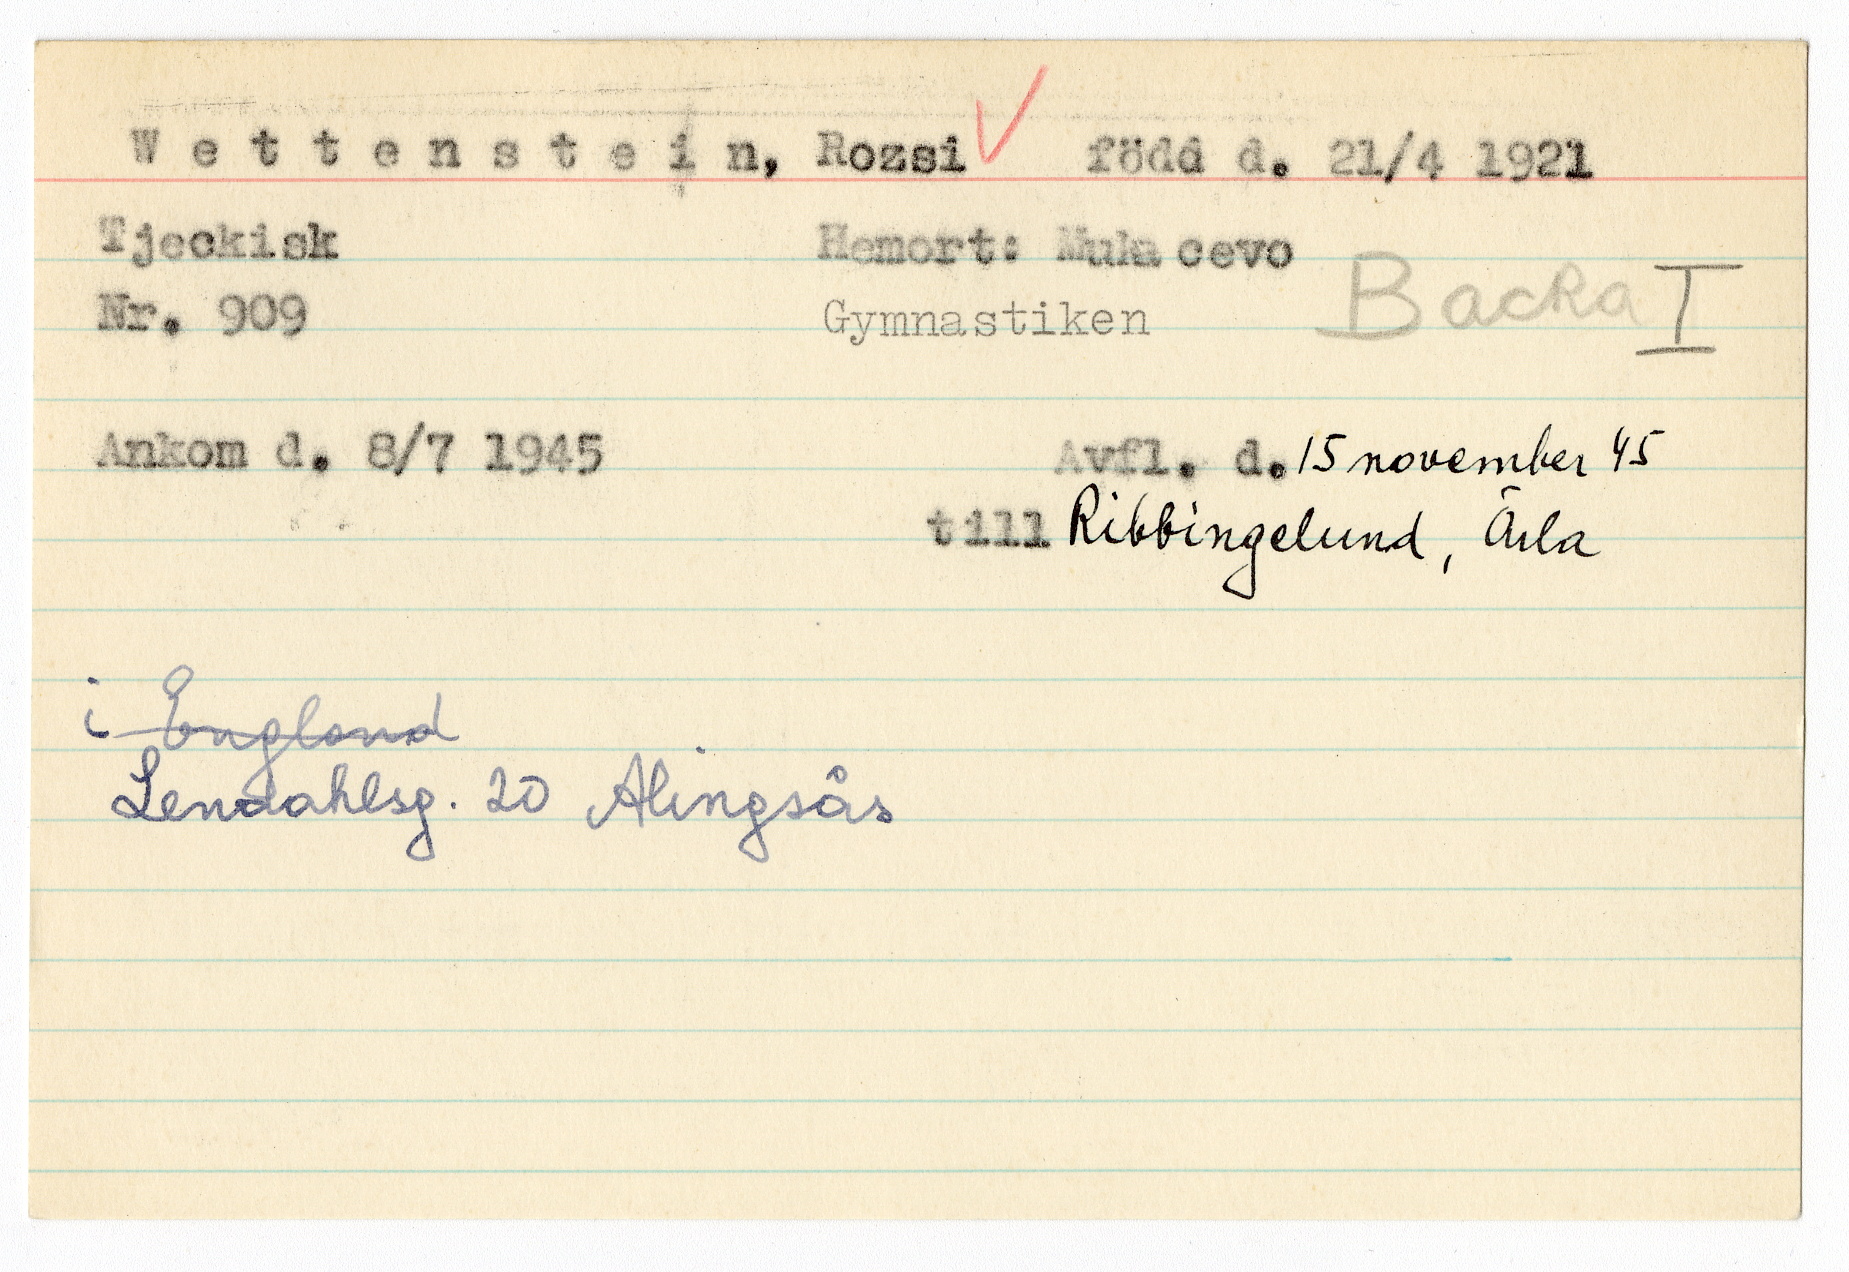 W e t t e n s t e i n, Rozsi född d. 21/4 1921
Tjeckisk Hemort: Mukacevo
Nr. 909 Gymnastiken Backa I
Ankom d. 8/7 1945 Avfl. d. 15 november 45
till Ribbingelund, Ärla
i England
Lendahlsg. 20 Alingsås